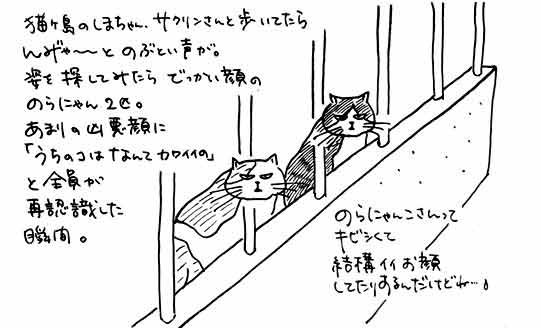 猫ヶ島のしまちゃん、サクリンさんと歩いてたら
んみゃ〜〜とのぶとい声が。
姿を探してみたらでっかい顔の
のらにゃん2匹。
あまりの凶悪顔に
「うちのコはなんてカワイイの」
と全員が
再認識した
瞬間。
のらにゃんこさんって
キビシくて
結構イイお顔
してたりするんだけどね…♪